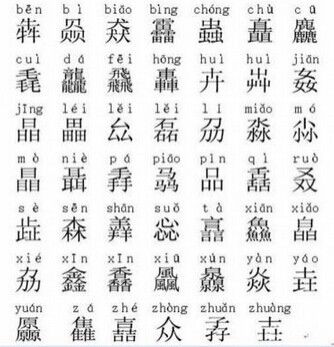 běn bì biāo bìng chóng chù cū
犇 赑 猋 靐 蟲 矗 麤
cuì dá fēi hōng huì huì jiān
毳 龘 飝 轟 卉 芔 姦
jīng léi lěi lěi lí miǎo mó
晶 畾 厽 磊 刕 淼 尛
mò niè pá piāo pǐn qì ruò
瞐 聶 掱 骉 品 叒
sè sēn shān suǒ tà xiān xiǎo
歮 森 羴 惢 譶 鱻 皛
xié xīn xīn xiū yàn yáo
劦 鑫 馫 飍 灥 焱 垚
yuán zá zhé zhòng zhuǎn zhuàng
厵 雥 嚞 众 孨 壵